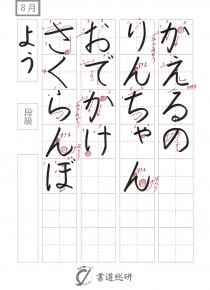 8月
かえるの
りんちゃん
おでかけ
さくらんぼ
よう
段級
書道総研